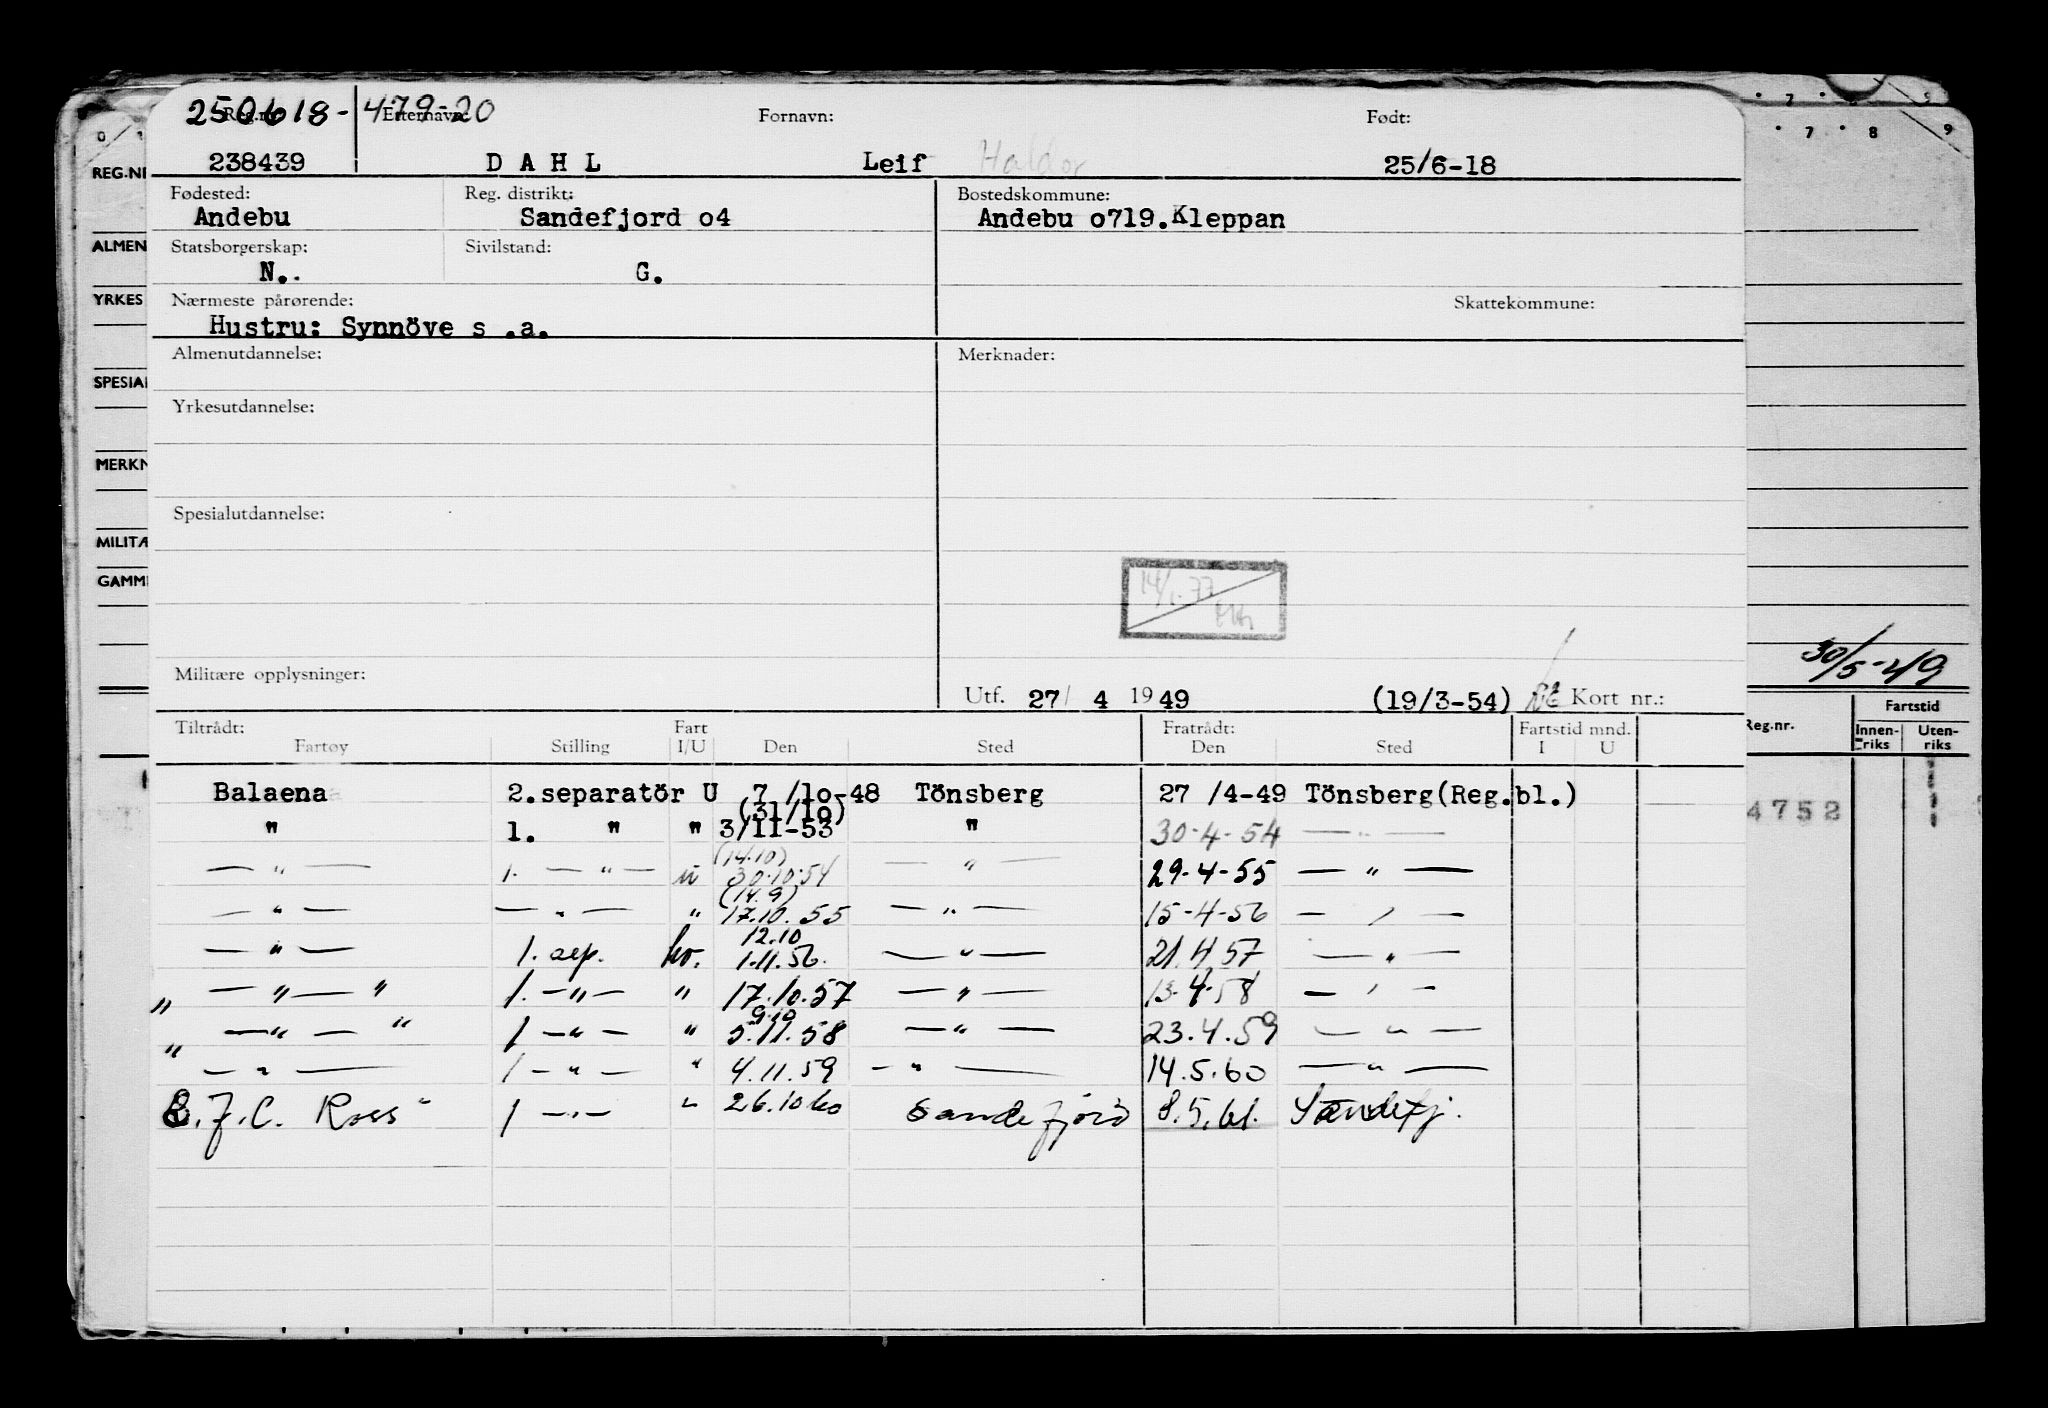 250618-47920
Reg.nr. Etternavn: Fornavn: Født:
238439 D A H L Leif Haldor 25/6-18
Fødested: Reg. distrikt: Bostedskommune:
Andebu Sandefjord o4 Andebu o719.Kleppan
Statsborgerskap: Sivilstand:
N.. G.
Nærmeste pårørende: Skattekommune:
Hustru: Synnöve s .a.
Almenutdannelse: Merknader:
Yrkesutdannelse:
Spesialutdannelse:
14/1.77
Militære opplysninger:
Utf. 27/ 4 1949 (19/3-54) Kort nr.:
Tiltrådt: Fart Fratrådt: Fartstid mnd.
Fartøy Stilling I/U Den Sted Den Sted I U
Balaena 2.separatör U 7 /lo-48 Tönsberg 27 /4-49 Tönsberg(Reg.bl.)
(31/lo)
" 1. " " 3/II-53 " 30-4-54 — " —
(14.10)
— " — 1. — " — u 30.10.54 — " — 29-4-55 — " —
(14.9)
— " — — " — " 17.10.55 — " — 15-4-56 — " —
12.10
— " — 1. sep. ko. 1.11.56. — " — 21.4.57 — " —
" — " — " 1. — " — " 17.10.57 — " — 13.4.58 — " —
9.10
" — " — " 1 — " — " 5.11.58 — " — 23.4.59 — " —
— " — 1 — " — " 4.11.59 — " — 14.5.60 — " —
J.C. Ross" 1 — " — " 26.10.60 Sandefjord 8.5.61. Sandefj.
REG.NR
ALMEN
YRKES
SPESIAL
MERKN
MILITÆ
GAMM
7 8 9
7 8 9
30/5-49
Reg.nr. Fartstid
Innenriks Utenriks
4752